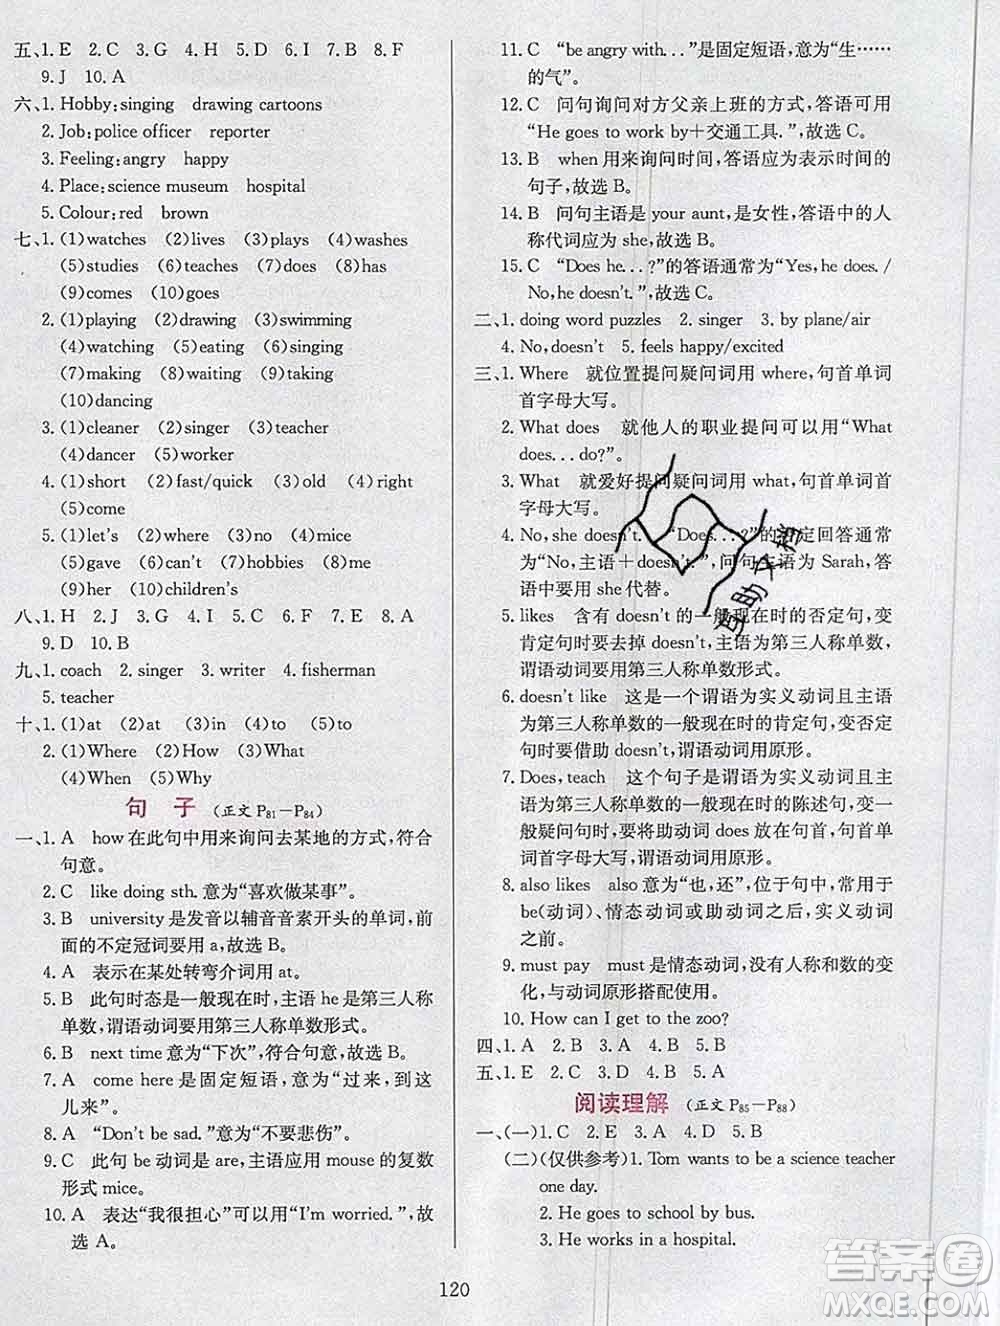 五、1. E　2. C　3. G　4. H　5. D　6. I　7. B　8. F
9. J　10. A
六、1. Hobby:singing　drawing cartoons
2. Job:police officer　reporter
3. Feeling:angry　happy
4. Place:science museum　hospital
5. Colour:red　brown
七、1. (1)watches　(2)lives　(3)plays　(4)washes
(5)studies　(6)teaches　(7)does　(8)has
(9)comes　(10)goes
2. (1)playing　(2)drawing　(3)swimming
(4)watching　(5)eating　(6)singing
(7)making　(8)waiting　(9)taking
(10)dancing
3. (1)cleaner　(2)singer　(3)teacher
(4)dancer　(5)worker
4. (1)short　(2)fast/quick　(3)old　(4)right
(5)come
5. (1)let's　(2)doesn't　(3)about　(4)mice
(5)gave　(6)can't　(7)hobbies　(8)me
(9)her　(10)children's
八、1. H　2. J　3. F　4. I　5. G　6. C　7. E　8. A
9. D　10. B
九、1. coach　2. singer　3. writer　4. fisherman
5. teacher
十、1. (1)at　(2)at　(3)in　(4)to　(5)to
2. (1)Where　(2)How　(3)What
(4)When　(5)Why
句　子　(正文 P81－P84)
一、1. A　how在此句中用来询问去某地的方式,符合
句意。
2. C　like doing sth. 意为“喜欢做某事”。
3. B　university是发音以辅音音素开头的单词,前
面的不定冠词要用a,故选B。
4. A　表示在某处转弯介词用at。
5. B　此句时态是一般现在时,主语he是第三人称
单数,谓语动词要用第三人称单数形式。
6. B　next time意为“下次”,符合句意,故选B。
7. A　come here是固定短语,意为“过来,到这
儿来”。
8. A　“Don't be sad.”意为“不要悲伤”。
9. C　此句be动词是are,主语应用mouse的复数
形式mice。
10. A　表达“我很担心”可以用“I'm worried.”,故
选A。
11. C　“be angry with...”是固定短语,意为“生……
的气”。
12. C　问句询问对方父亲上班的方式,答语可用
“He goes to work by＋交通工具.”,故选C。
13. B　when用来询问时间,答语应为表示时间的
句子,故选B。
14. B　问句主语是your aunt,是女性,答语中的人
称代词应为she,故选B。
15. C　“Does he...?”的答语通常为“Yes, he does./
No, he doesn't.”,故选C。
二、1. doing word puzzles　2. singer　3. by plane/air
4. No, doesn't　5. feels happy/excited
三、1. Where　就位置提问疑问词用where,句首单词
首字母大写。
2. What does　就他人的职业提问可以用“What
does...do?”。
3. What　就爱好提问疑问词用what,句首单词首
字母大写。
4. No, she doesn't.　“Does...?”的否定回答通常
为“No,主语＋doesn't.”,问句主语为Sarah,答
语中要用she代替。
5. likes　含有doesn't的一般现在时的否定句,变
肯定句时要去掉doesn't,主语为第三人称单数,
谓语动词要用第三人称单数形式。
6. doesn't like　这是一个谓语为实义动词且主语
为第三人称单数的一般现在时的肯定句,变否定
句时要借助doesn't,谓语动词用原形。
7. Does, teach　这个句子是谓语为实义动词且主语
为第三人称单数的一般现在时的陈述句,变
一般疑问句时,要将助动词does放在句首,句首单
词首字母大写,谓语动词用原形。
8. also likes　also意为“也,还”,位于句中,常用于
be(动词)、情态动词或助动词之后,实义动词
之前。
9. must pay　must是情态动词,没有人称和数的变
化,与动词原形搭配使用。
10. How can I get to the zoo?
四、1. A　2. B　3. B　4. A　5. B
五、1. E　2. C　3. D　4. B　5. A
阅读理解　(正文 P85－P88)
一、(一)1. C　2. E　3. A　4. D　5. B
(二)(仅供参考)1. Tom wants to be a science teacher
one day.
2. He goes to school by bus.
3. He works in a hospital.
120
互助文档
答案圈
MXQE.COM